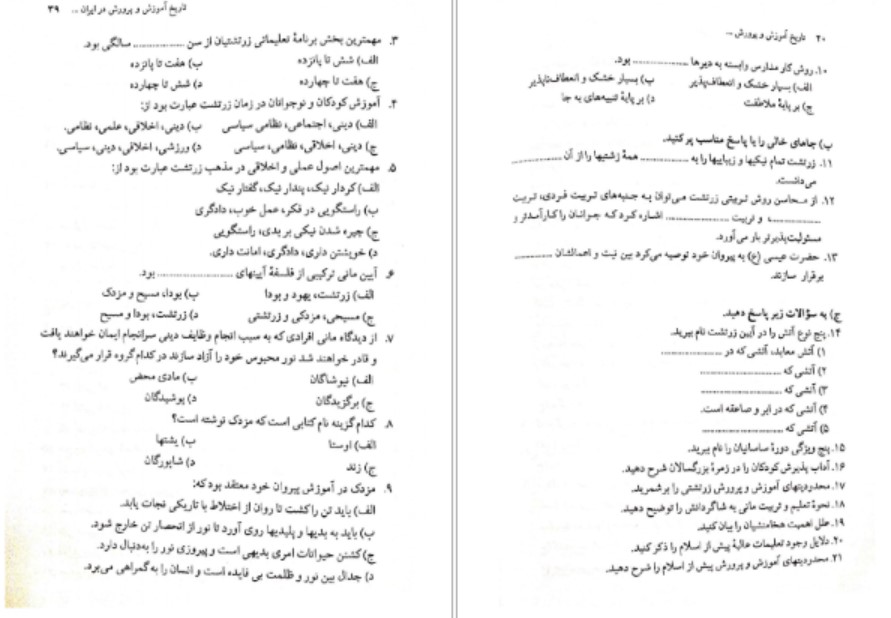 تاریخ آموزش و پرورش در ایران ... ۳۹
۳. مهمترین بخش برنامهٔ تعلیماتی زرتشتیان از سن ................ سالگی بود.
الف) شش تا پانزده
ب) هفت تا پانزده
ج) هفت تا چهارده
د) شش تا چهارده
۴. آموزش کودکان و نوجوانان در زمان زرتشت عبارت بود از:
الف) دینی، اجتماعی، نظامی سیاسی
ب) دینی، اخلاقی، علمی، نظامی.
ج) دینی، اخلاقی، نظامی، سیاسی
د) ورزشی، اخلاقی، دینی، سیاسی.
۵. مهمترین اصول عملی و اخلاقی در مذهب زرتشت عبارت بود از:
الف) کردار نیک، پندار نیک، گفتار نیک
ب) راستگویی در فکر، عمل خوب، دادگری
ج) چیره شدن نیکی بر بدی، راستگویی
د) خویشتن داری، دادگری، امانت داری.
۶. آیین مانی ترکیبی از فلسفهٔ آیینهای ................ بود.
الف) زرتشت، یهود و بودا
ب) بودا، مسیح و مزدک
ج) مسیحی، مزدکی و زرتشتی
د) زرتشت، بودا و مسیح
۷. از دیدگاه مانی افرادی که به سبب انجام وظایف دینی سرانجام ایمان خواهند یافت
و قادر خواهند شد نور محبوس خود را آزاد سازند در کدام گروه قرار می‌گیرند؟
الف) نیوشاگان
ب) مادی محض
ج) برگزیدگان
د) پوشیدگان
۸. کدام گزینه نام کتابی است که مزدک نوشته است؟
الف) اوستا
ب) یشتها
ج) زند
د) شاپورگان
۹. مزدک در آموزش پیروان خود معتقد بود که:
الف) باید تن را کشت تا روان از اختلاط با تاریکی نجات یابد.
ب) باید به بدیها و پلیدیها روی آورد تا نور از انحصار تن خارج شود.
ج) کشتن حیوانات امری بدیهی است و پیروزی نور را به‌دنبال دارد.
د) جدال بین نور و ظلمت بی فایده است و انسان را به گمراهی می‌برد.
۴۰ تاریخ آموزش و پرورش ...
۱۰. روش کار مدارس وابسته به دیرها ................ بود.
الف) بسیار خشک و انعطاف‌پذیر
ب) بسیار خشک و انعطاف‌ناپذیر
ج) بر پایهٔ ملاطفت
د) بر پایهٔ تنبیه‌های به جا
ب) جاهای خالی را با پاسخ مناسب پر کنید.
۱۱. زرتشت تمام نیکیها و زیباییها را به ................ همهٔ زشتیها را از آن ................
می‌دانست.
۱۲. از محاسن روش تربیتی زرتشت می‌توان به جنبه‌های تربیت فردی، تربیت
................، و تربیت ................ اشاره کرد که جوانان را کارآمدتر و
مسئولیت‌پذیرتر بار می‌آورد.
۱۳. حضرت عیسی (ع) به پیروان خود توصیه می‌کرد بین نیت و اعمالشان ................
برقرار سازند.
ج) به سؤالات زیر پاسخ دهید.
۱۴. پنج نوع آتش را در آیین زرتشت نام ببرید.
۱) آتش معابد، آتشی که در ................
۲) آتشی که ................
۳) آتشی که ................
۴) آتشی که در ابر و صاعقه است.
۵) آتشی که ................
۱۵. پنج ویژگی دورهٔ ساسانیان را نام ببرید.
۱۶. آداب پذیرش کودکان را در زمرهٔ بزرگسالان شرح دهید.
۱۷. محدودیتهای آموزش و پرورش زرتشتی را برشمرید.
۱۸. نحوهٔ تعلیم و تربیت مانی به شاگردانش را توضیح دهید.
۱۹. علل اهمیت هخامنشیان را بیان کنید.
۲۰. دلایل وجود تعلیمات عالیهٔ پیش از اسلام را ذکر کنید.
۲۱. محدودیتهای آموزش و پرورش پیش از اسلام را شرح دهید.